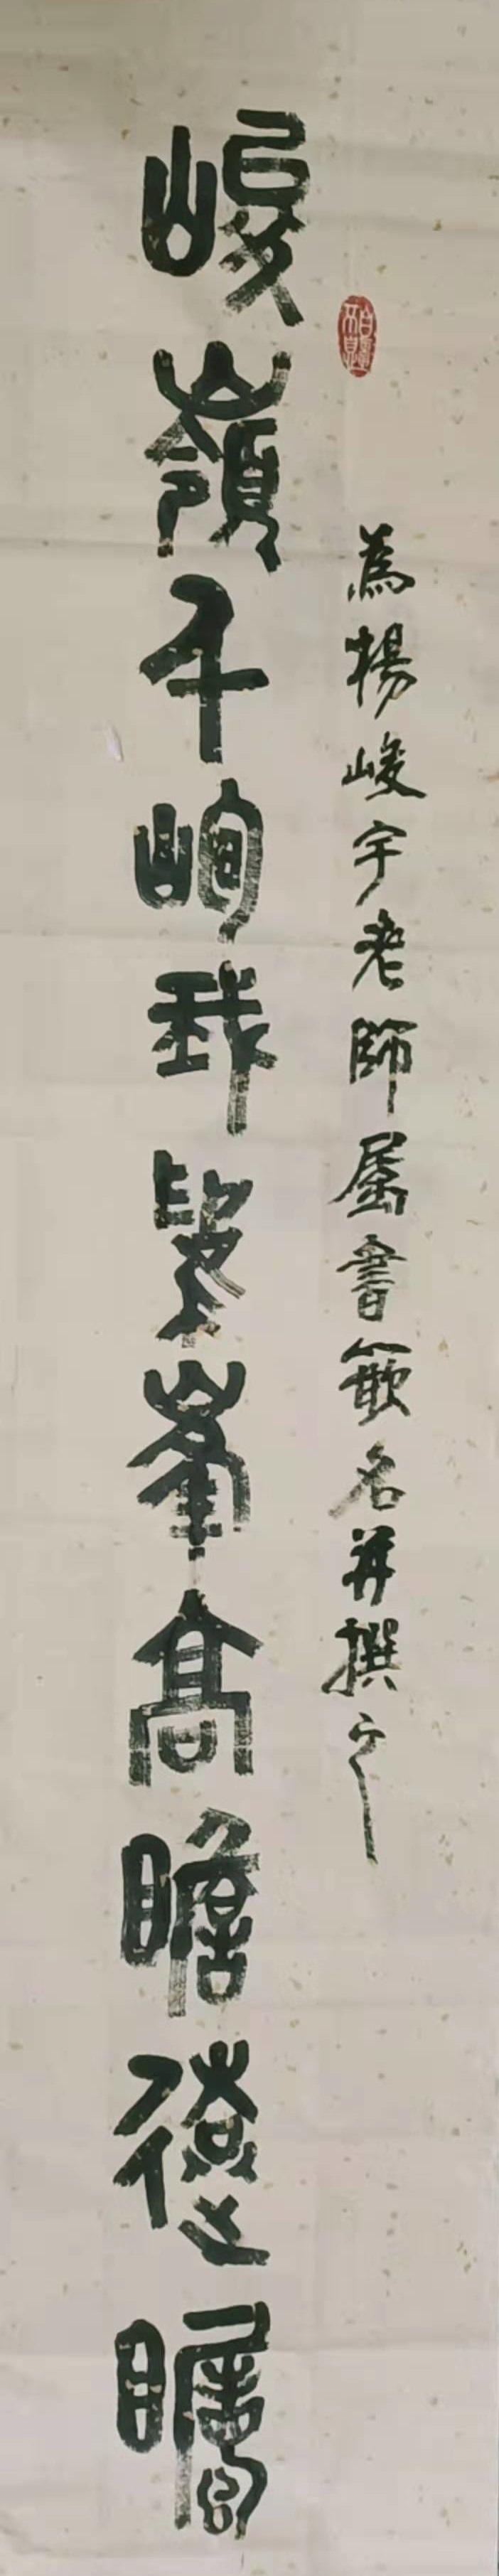 為楊峻宇老師屬書嵌名并撰之
峻嶺千峋我望峯高瞻遠矚